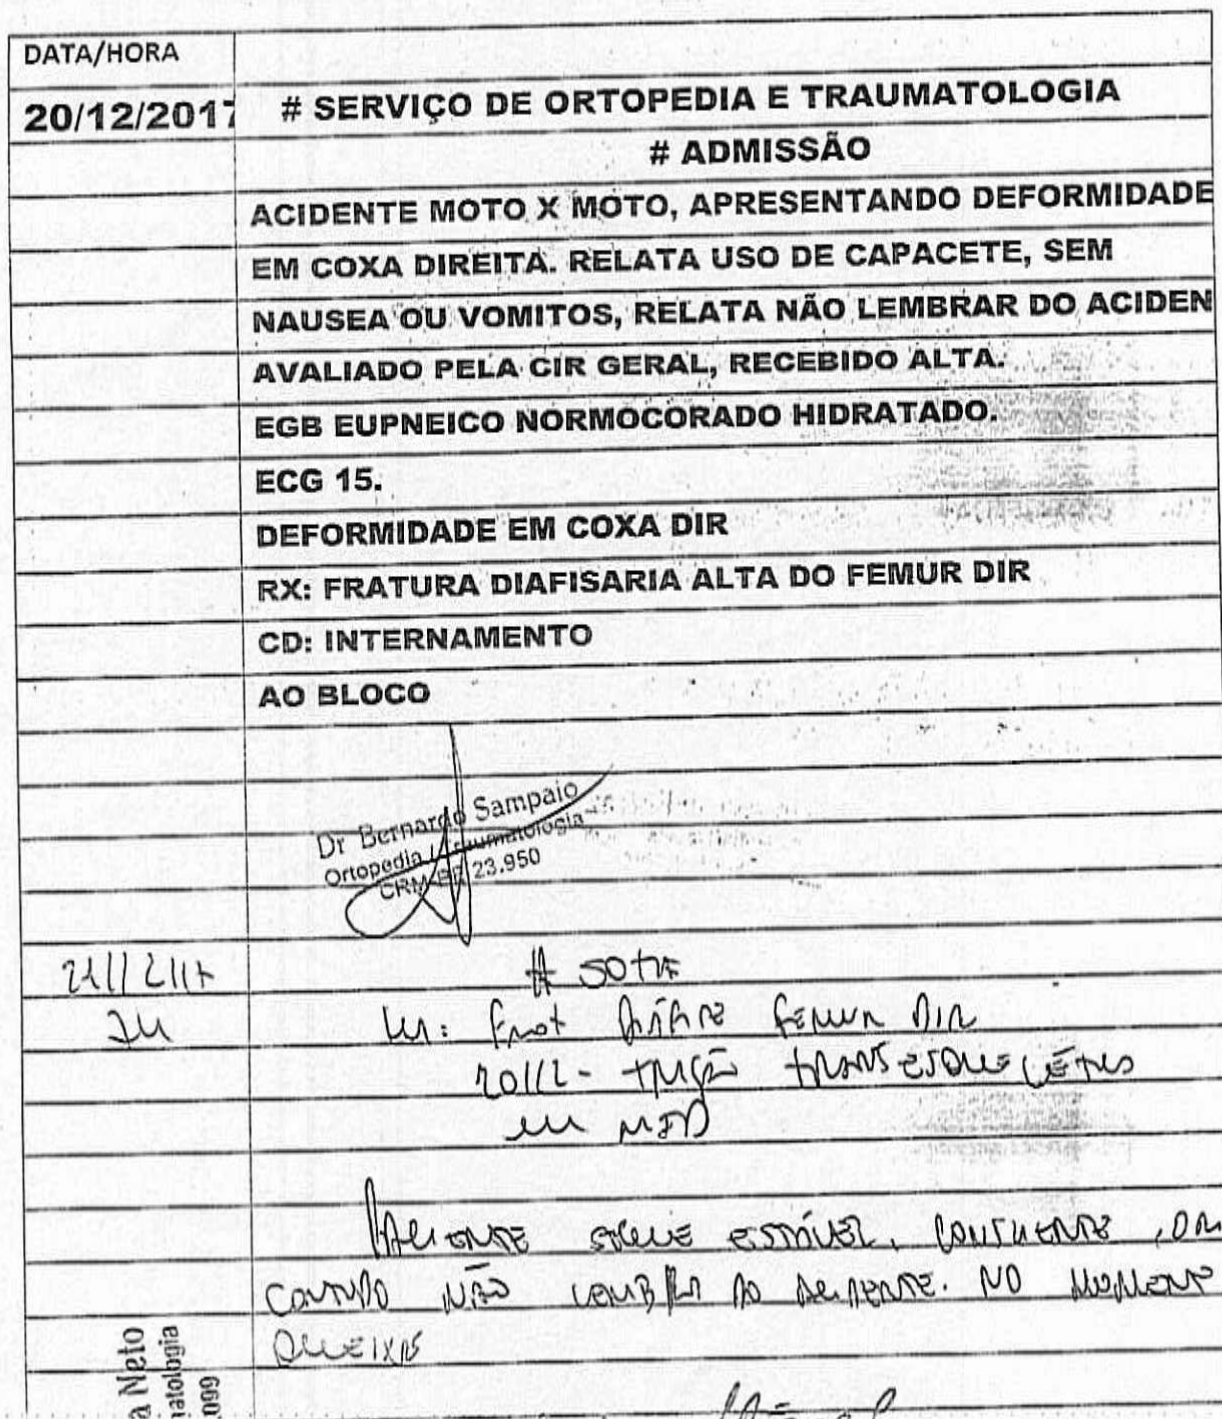 DATA/HORA
20/12/2017 # SERVIÇO DE ORTOPEDIA E TRAUMATOLOGIA
# ADMISSÃO
ACIDENTE MOTO X MOTO, APRESENTANDO DEFORMIDADE
EM COXA DIREITA. RELATA USO DE CAPACETE, SEM
NAUSEA OU VOMITOS, RELATA NÃO LEMBRAR DO ACIDEN
AVALIADO PELA CIR GERAL, RECEBIDO ALTA.
EGB EUPNEICO NORMOCORADO HIDRATADO.
ECG 15.
DEFORMIDADE EM COXA DIR
RX: FRATURA DIAFISARIA ALTA DO FEMUR DIR
CD: INTERNAMENTO
AO BLOCO
Dr Bernardo Sampaio
Ortopedia / Traumatologia
CRM-PE 23.950
21/12/17 # SOTR
Frat DIÁFISE FEMUR DIR
20/12 - TRAÇÃO TRANSESQUELÉTICA
em MID
PACIENTE SEGUE ESTÁVEL, CONSCIENTE, OR
CONTUDO NÃO LEMBRA DO ACIDENTE. NO MOMENTO
QUEIXAS
a Neto
matologia
099